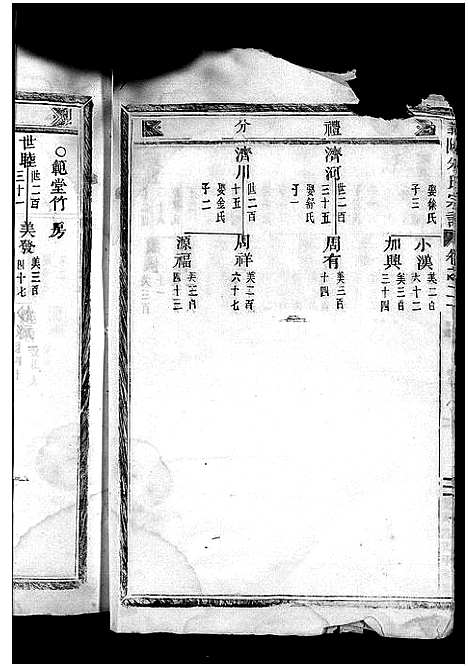 禮分
娶徐氏
子三
小漢
美二百
六十二
加興
美三百
三十四
濟河
世二百
三十五
娶舒氏
子一
周有
美三百
十四
濟川
世二百
十五
娶金氏
子二
周祥
美三百
六十七
源福
美三百
四十三
○範堂竹房
世睦
世二百
三十一
美發
美三百
四十七